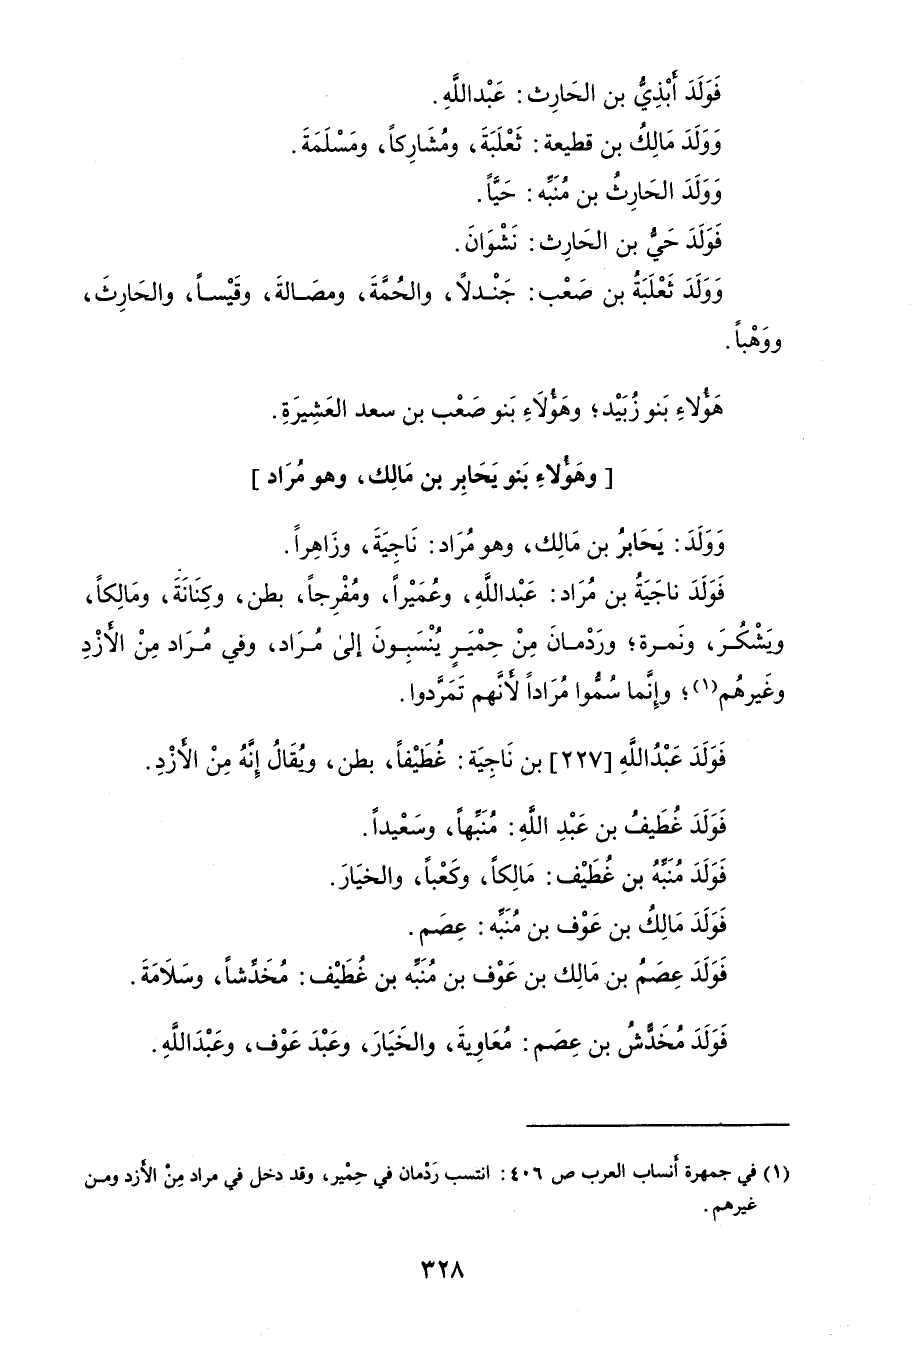 فَوَلَدَ أَبْذِيُّ بن الحَارِث : عَبْداللَّهِ .
وَوَلَدَ مَالِكُ بن قطيعة : ثَعْلَبَةَ ، ومُشَارِكاً ، ومَسْلَمَةَ .
وَوَلَدَ الحَارِثُ بن مُنَبِّه : حَيَّاً .
فَوَلَدَ حَيُّ بن الحَارِث : نَشْوَانَ .
وَوَلَدَ ثَعْلَبَةُ بن صَعْب : جَنْدلاً ، والحُمَّةَ ، ومصَالةَ ، وقَيْساً ، والحَارِثَ ،
ووَهْباً .
هَؤُلاءِ بَنو زُبَيْد ؛ وهَؤُلَاءِ بَنو صَعْب بن سعد العَشِيرَةِ .
[ وهَؤُلاءِ بَنو يَحَابِر بن مَالِك ، وهو مُرَاد ]
وَوَلَدَ : يَحَابرُ بن مَالِك ، وهو مُرَاد : نَاجِيَةَ ، وزَاهِراً .
فَوَلَدَ ناجَيَةُ بن مُرَاد : عَبْداللَّهِ ، وعُمَيْراً ، ومُفْرِجاً ، بطن ، وكِنَانَةَ ، ومَالِكاً ،
ويَشْكُرَ ، ونَمرة ؛ ورَدْمانَ مِنْ حِمْيَرٍ يُنْسَبِونَ إلىٰ مُرَاد ، وفي مُرَاد مِنْ الأَزْدِ
وغَيرهُم(١) ؛ وإنَّما سُمُّوا مُرَاداً لأَنَّهم تَمَرَّدوا .
فَوَلَدَ عَبْدُاللَّهِ [٢٢٧] بن نَاجِيَة : غُطَيْفاً ، بطن ، ويُقَالُ إنَّهُ مِنْ الأَزْدِ .
فَوَلَدَ غُطَيفُ بن عَبْدِ اللَّهِ : مُنَبِّهاً ، وسَعْيداً .
فَوَلَدَ مُنَبِّهُ بن غُطَيْف : مَالِكاً ، وكَعْباً ، والخيَارَ .
فَوَلَدَ مَالِكُ بن عَوْف بن مُنَبِّه : عِصَم .
فَوَلَدَ عِصَمُ بن مَالِك بن عَوْف بن مُنَبِّه بن غُطَيْف : مُخَدِّشاً ، وسَلَامَةَ .
فَوَلَدَ مُخَدِّشُ بن عِصَم : مُعَاوِيةَ ، والخَيَارَ ، وعَبْدَ عَوْف ، وعَبْدَاللَّهِ .
(١) في جمهرة أنساب العرب ص ٤٠٦ : انتسب رَدْمان في حِمْير ، وقد دخل في مراد مِنْ الأزد ومن
غيرهم .
٣٢٨